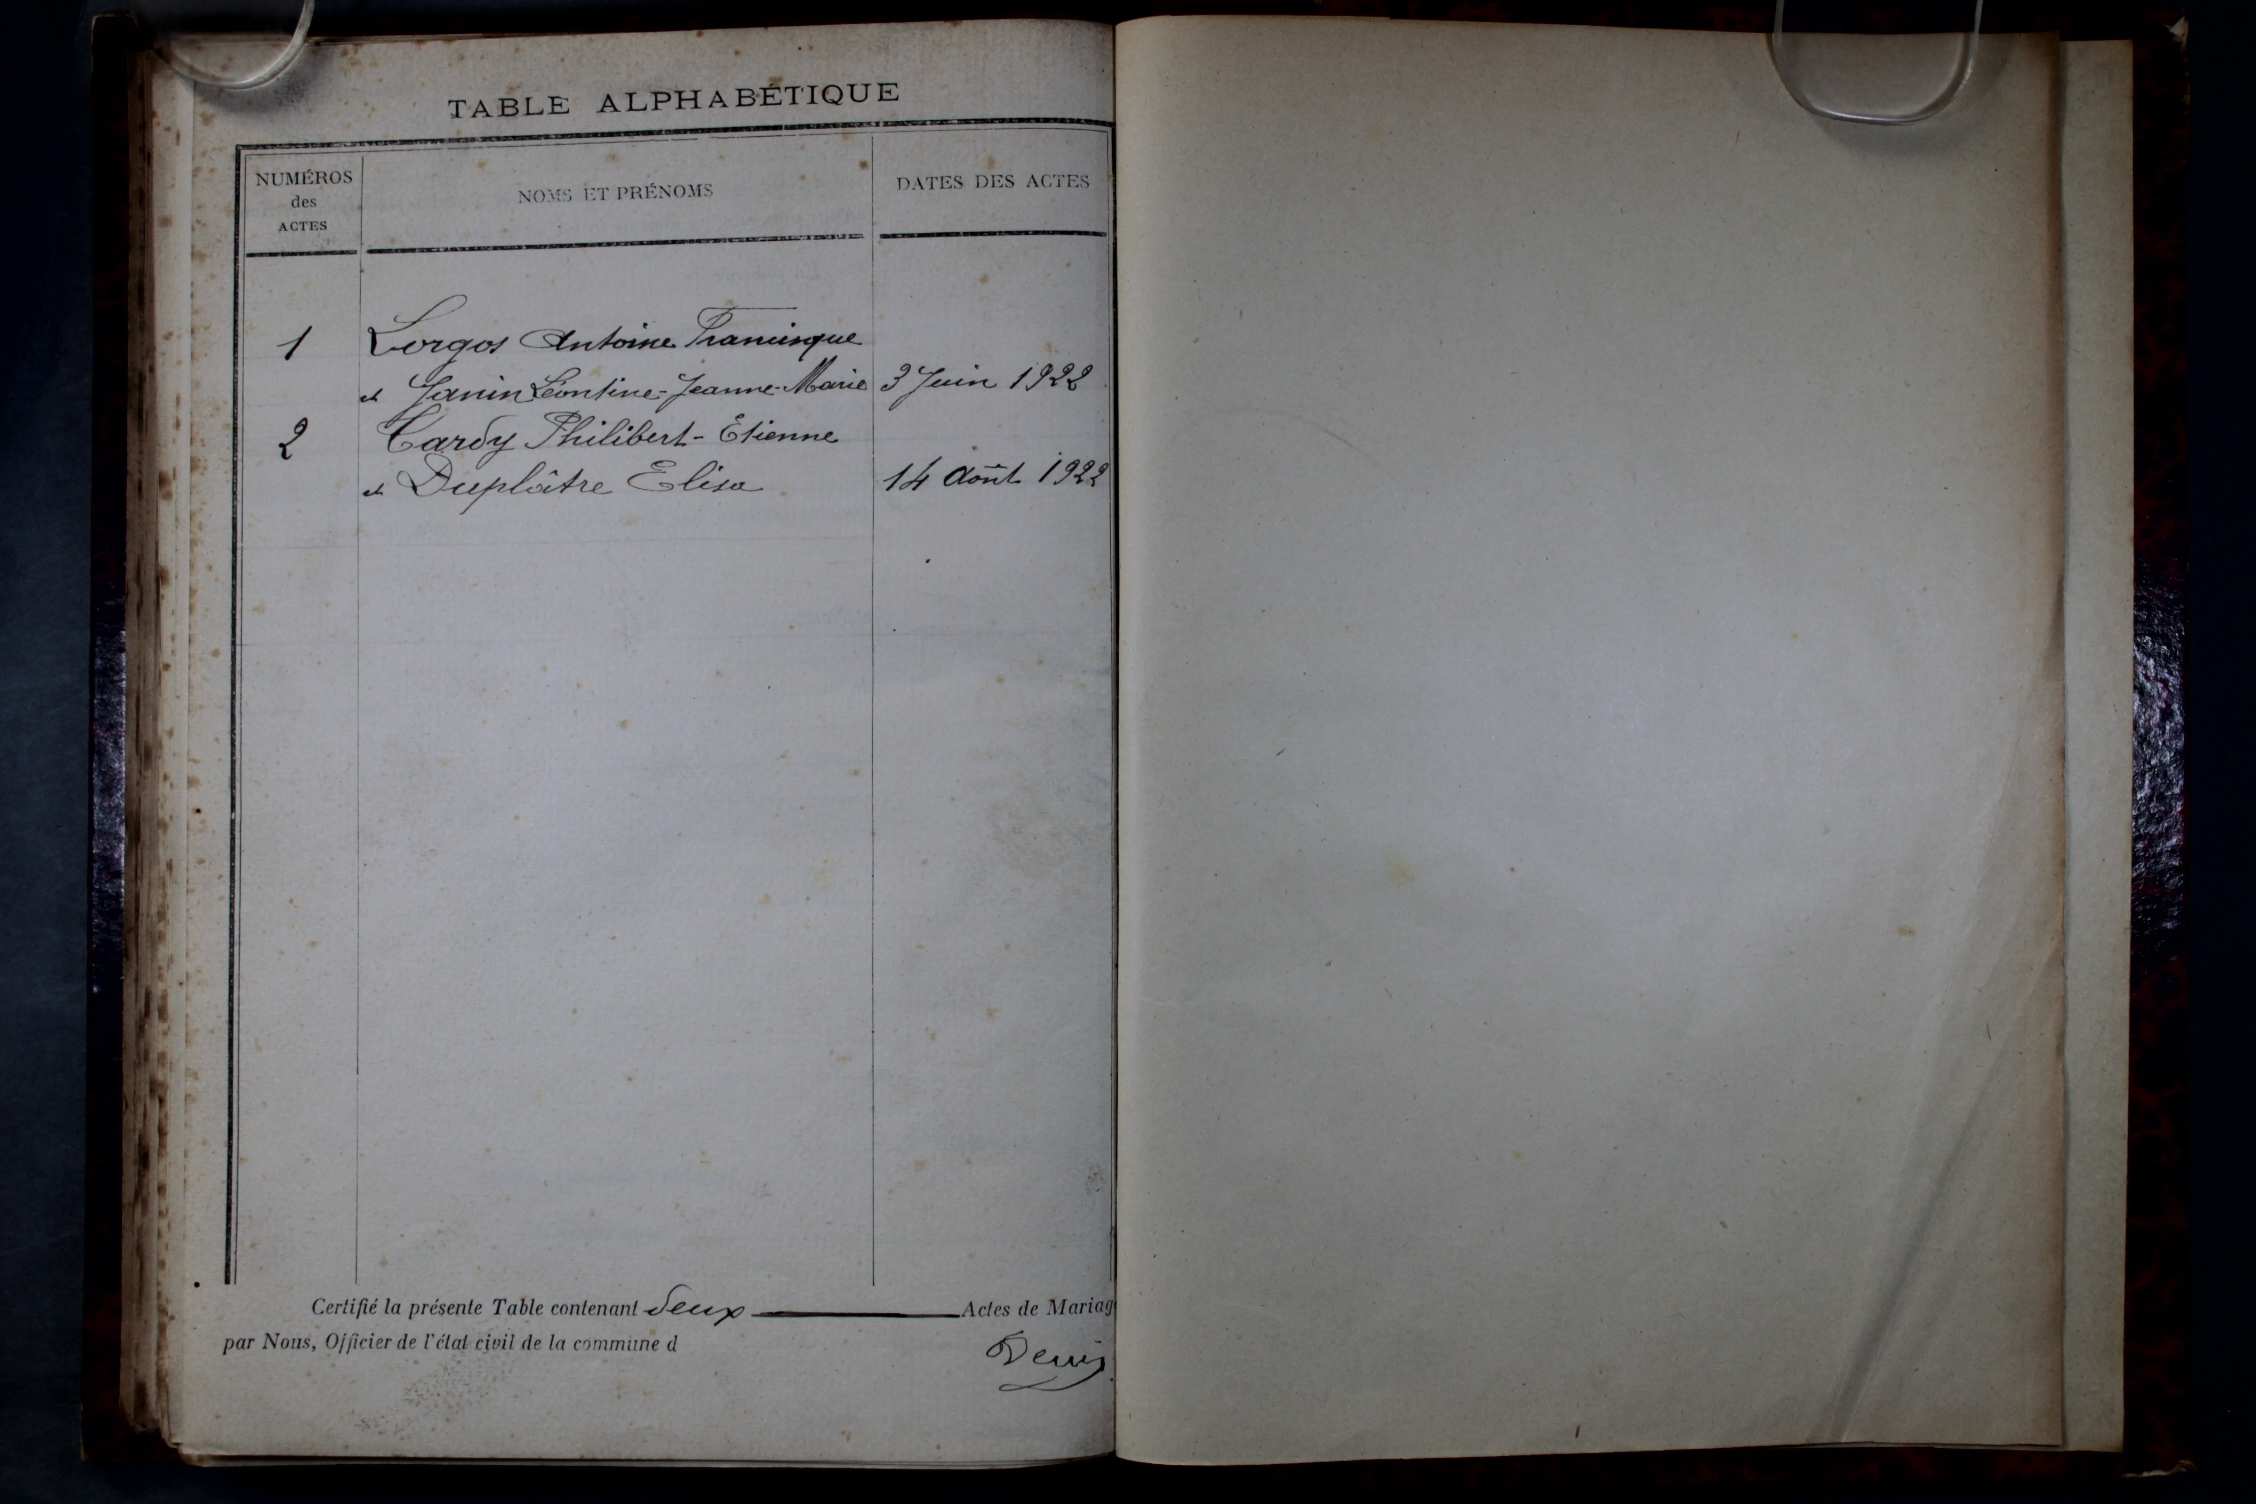 TABLE ALPHABÉTIQUE
NUMÉROS
des
ACTES
NOMS ET PRÉNOMS
DATES DES ACTES
1 Lorgos Antoine Francisque
et Janin Léontine-Jeanne-Marie 3 Juin 1922
2 Cardy Philibert-Étienne
et Duplâtre Elisa 14 Août 1922
Certifié la présente Table contenant deux Actes de Mariag
par Nous, Officier de l'état civil de la commune d
Denis